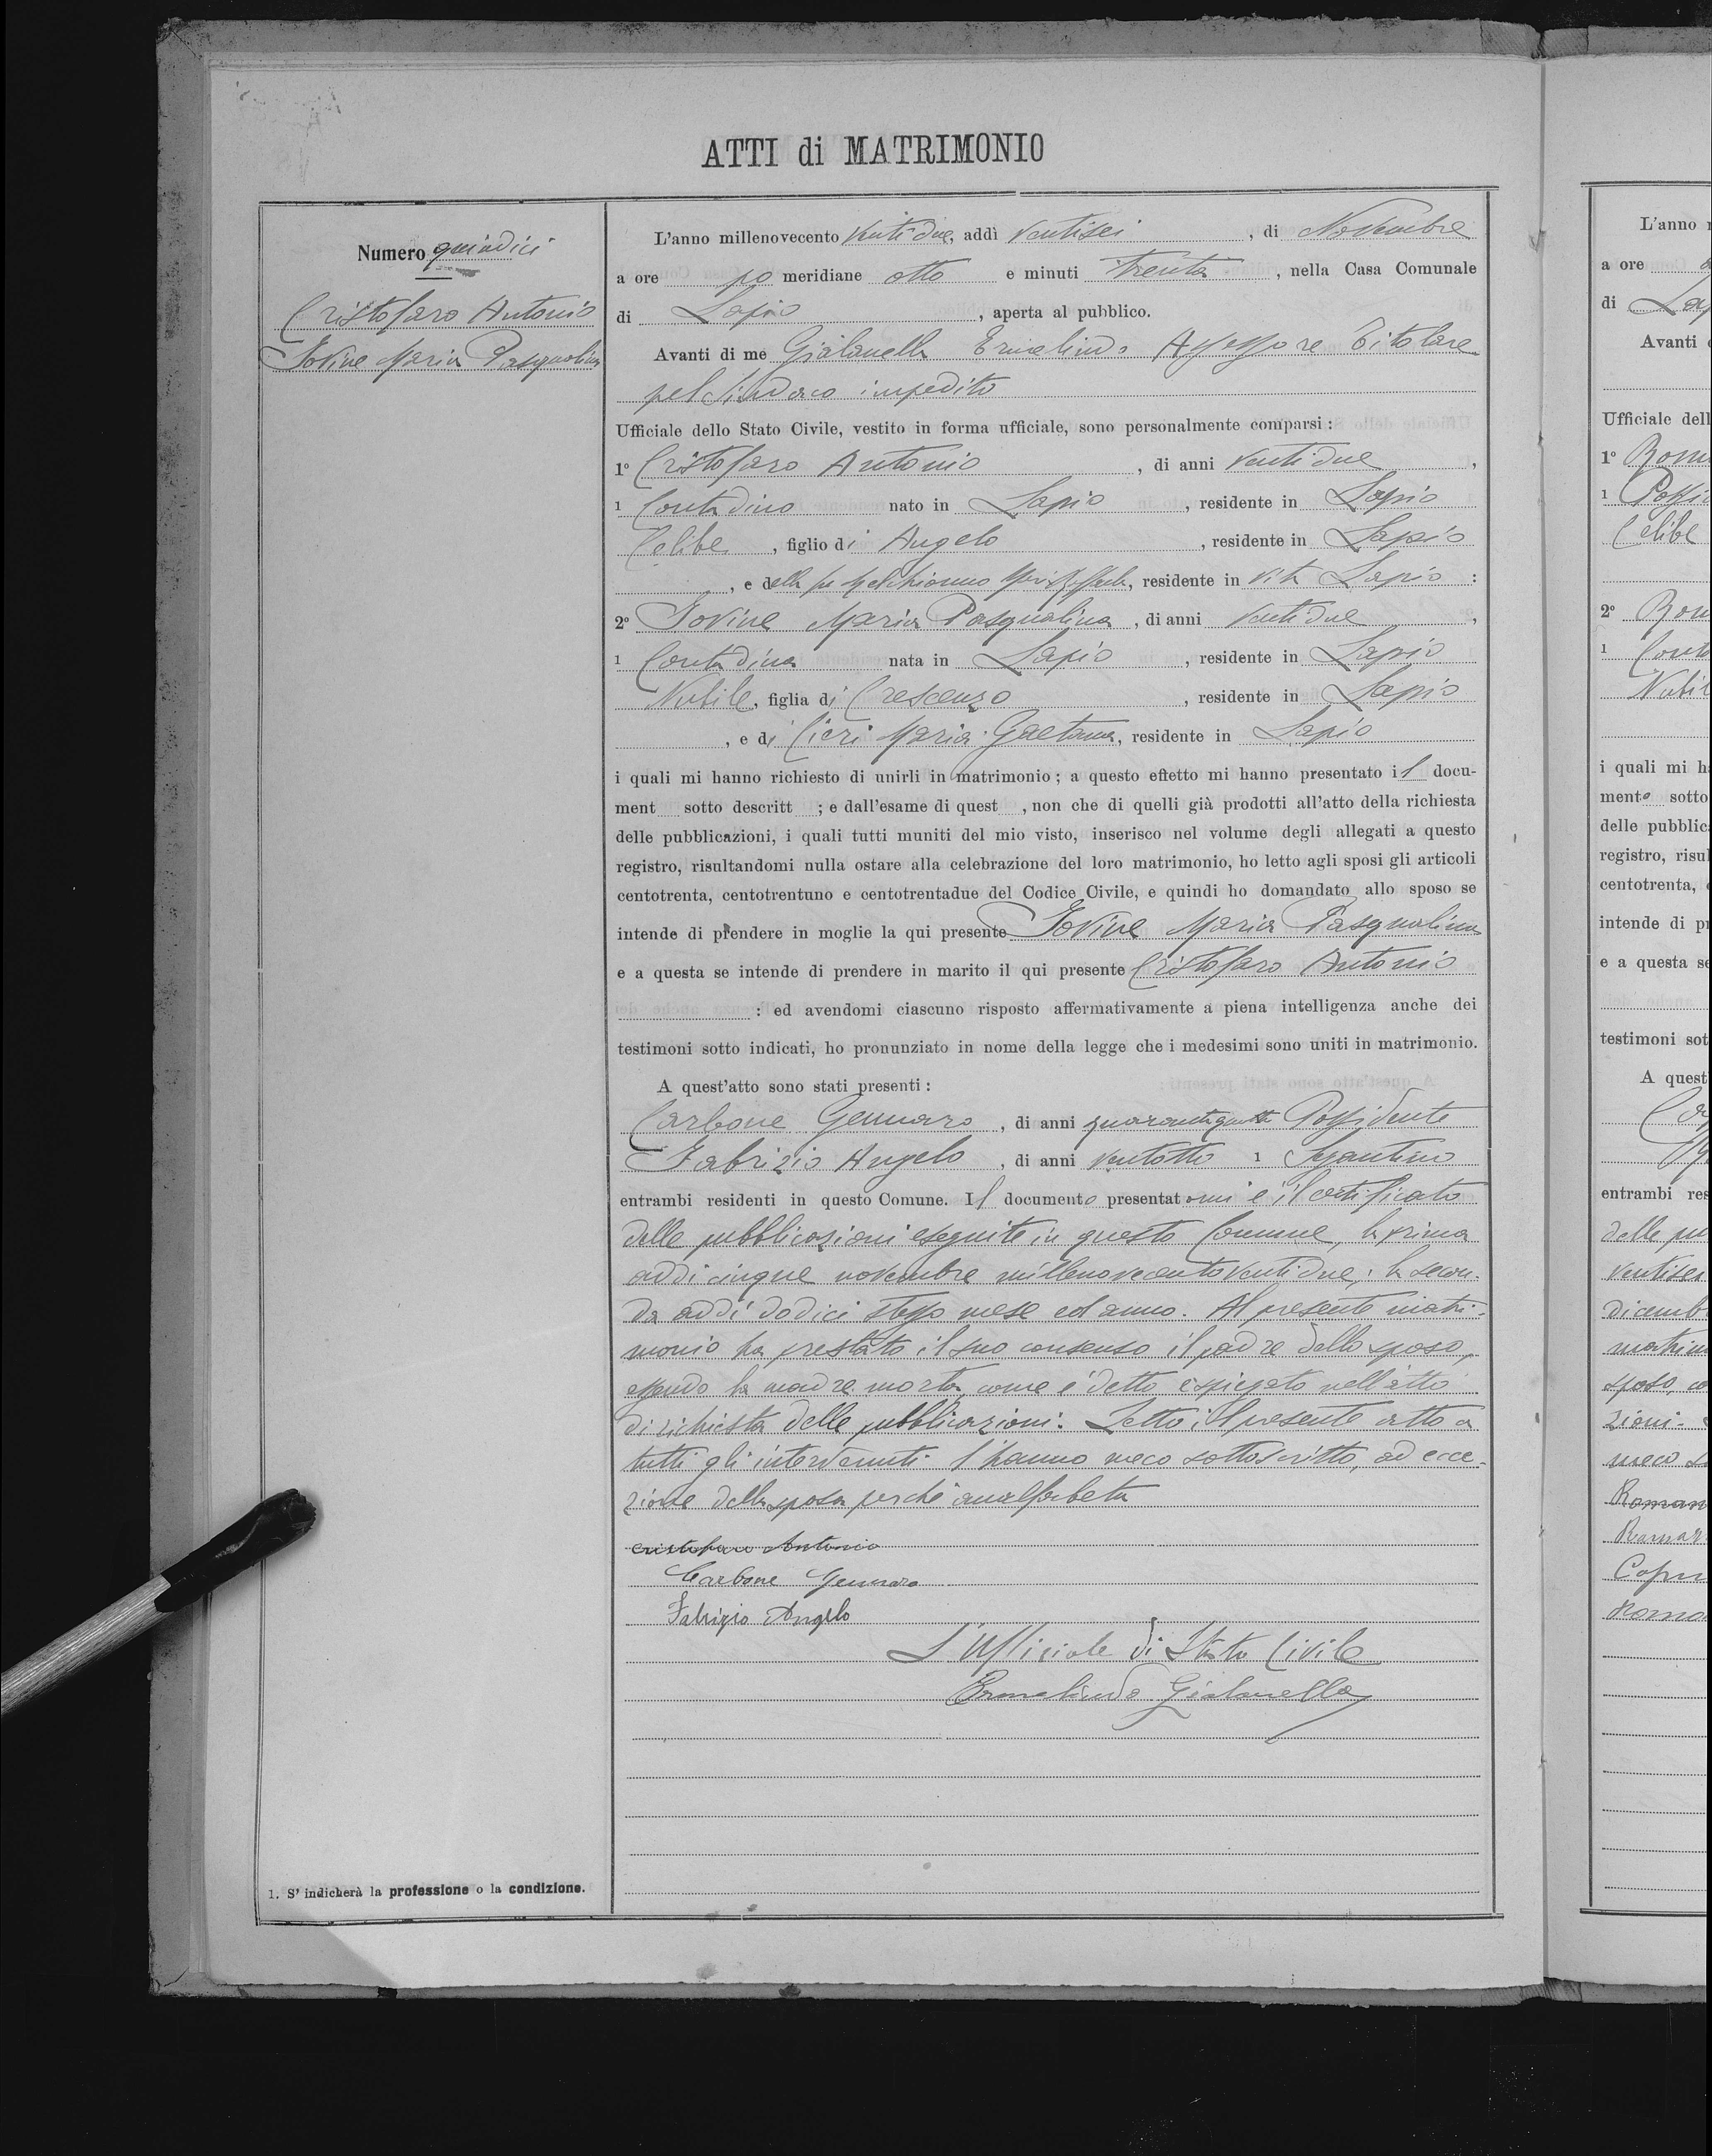 ATTI di MATRIMONIO
Numero quindici
Cristofaro Antonio
Iovine Maria Pasqualina
L'anno millenovecento ventidue, addì ventisei, di Novembre
a ore po meridiane otto e minuti trenta, nella Casa Comunale
di Lapio, aperta al pubblico.
Avanti di me Gialanella Ermelindo Assessore Titolare
pel Sindaco impedito
Ufficiale dello Stato Civile, vestito in forma ufficiale, sono personalmente comparsi:
1° Cristofaro Antonio, di anni ventidue,
1 Contadino nato in Lapio, residente in Lapio
Celibe, figlio di Angelo, residente in Lapio
, e della fu, residente in vita Lapio:
2° Iovine Maria Pasqualina, di anni ventidue,
1 Contadina nata in Lapio, residente in Lapio
Nubile, figlia di Crescenzo, residente in Lapio
, e di Cieri Maria Gaetana, residente in Lapio
i quali mi hanno richiesto di unirli in matrimonio; a questo effetto mi hanno presentato il docu-
ment sotto descritt ; e dall'esame di quest , non che di quelli già prodotti all'atto della richiesta
delle pubblicazioni, i quali tutti muniti del mio visto, inserisco nel volume degli allegati a questo
registro, risultandomi nulla ostare alla celebrazione del loro matrimonio, ho letto agli sposi gli articoli
centotrenta, centotrentuno e centotrentadue del Codice Civile, e quindi ho domandato allo sposo se
intende di prendere in moglie la qui presente Iovine Maria Pasqualina
e a questa se intende di prendere in marito il qui presente Cristofaro Antonio
: ed avendomi ciascuno risposto affermativamente a piena intelligenza anche dei
testimoni sotto indicati, ho pronunziato in nome della legge che i medesimi sono uniti in matrimonio.
A quest'atto sono stati presenti:
Carbone Gennaro, di anni Possidente
Fabrizio Angelo, di anni ventotto 1
entrambi residenti in questo Comune. Il documento presentatomi è il certificato
delle pubblicazioni eseguite in questo Comune, la prima
addì cinque novembre millenovecentoventidue; la secon-
da addì dodici stesso mese ed anno. Al presente matri-
monio ha prestato il suo consenso il padre dello sposo,
essendo la madre morta, come è detto e spiegato nell'atto
di richiesta delle pubblicazioni. Letto il presente atto a
tutti gli intervenuti l'hanno meco sottoscritto, ad ecce-
zione della sposa perché analfabeta
Cristofaro Antonio
Carbone Gennaro
Fabrizio Angelo
L'Ufficiale di Stato Civile
Ermelindo Gialanella
1. S'indicherà la professione o la condizione.
L'anno
a ore
di
Avanti
Ufficiale dell
1°
1
Celibe
2°
1
i quali mi h
mento sotto
delle pubblic
registro, risul
centotrenta,
intende di pr
e a questa se
testimoni sot
A quest
entrambi res
delle pu
ventisei
dicemb
matrim
sposo, co
zioni.
meco